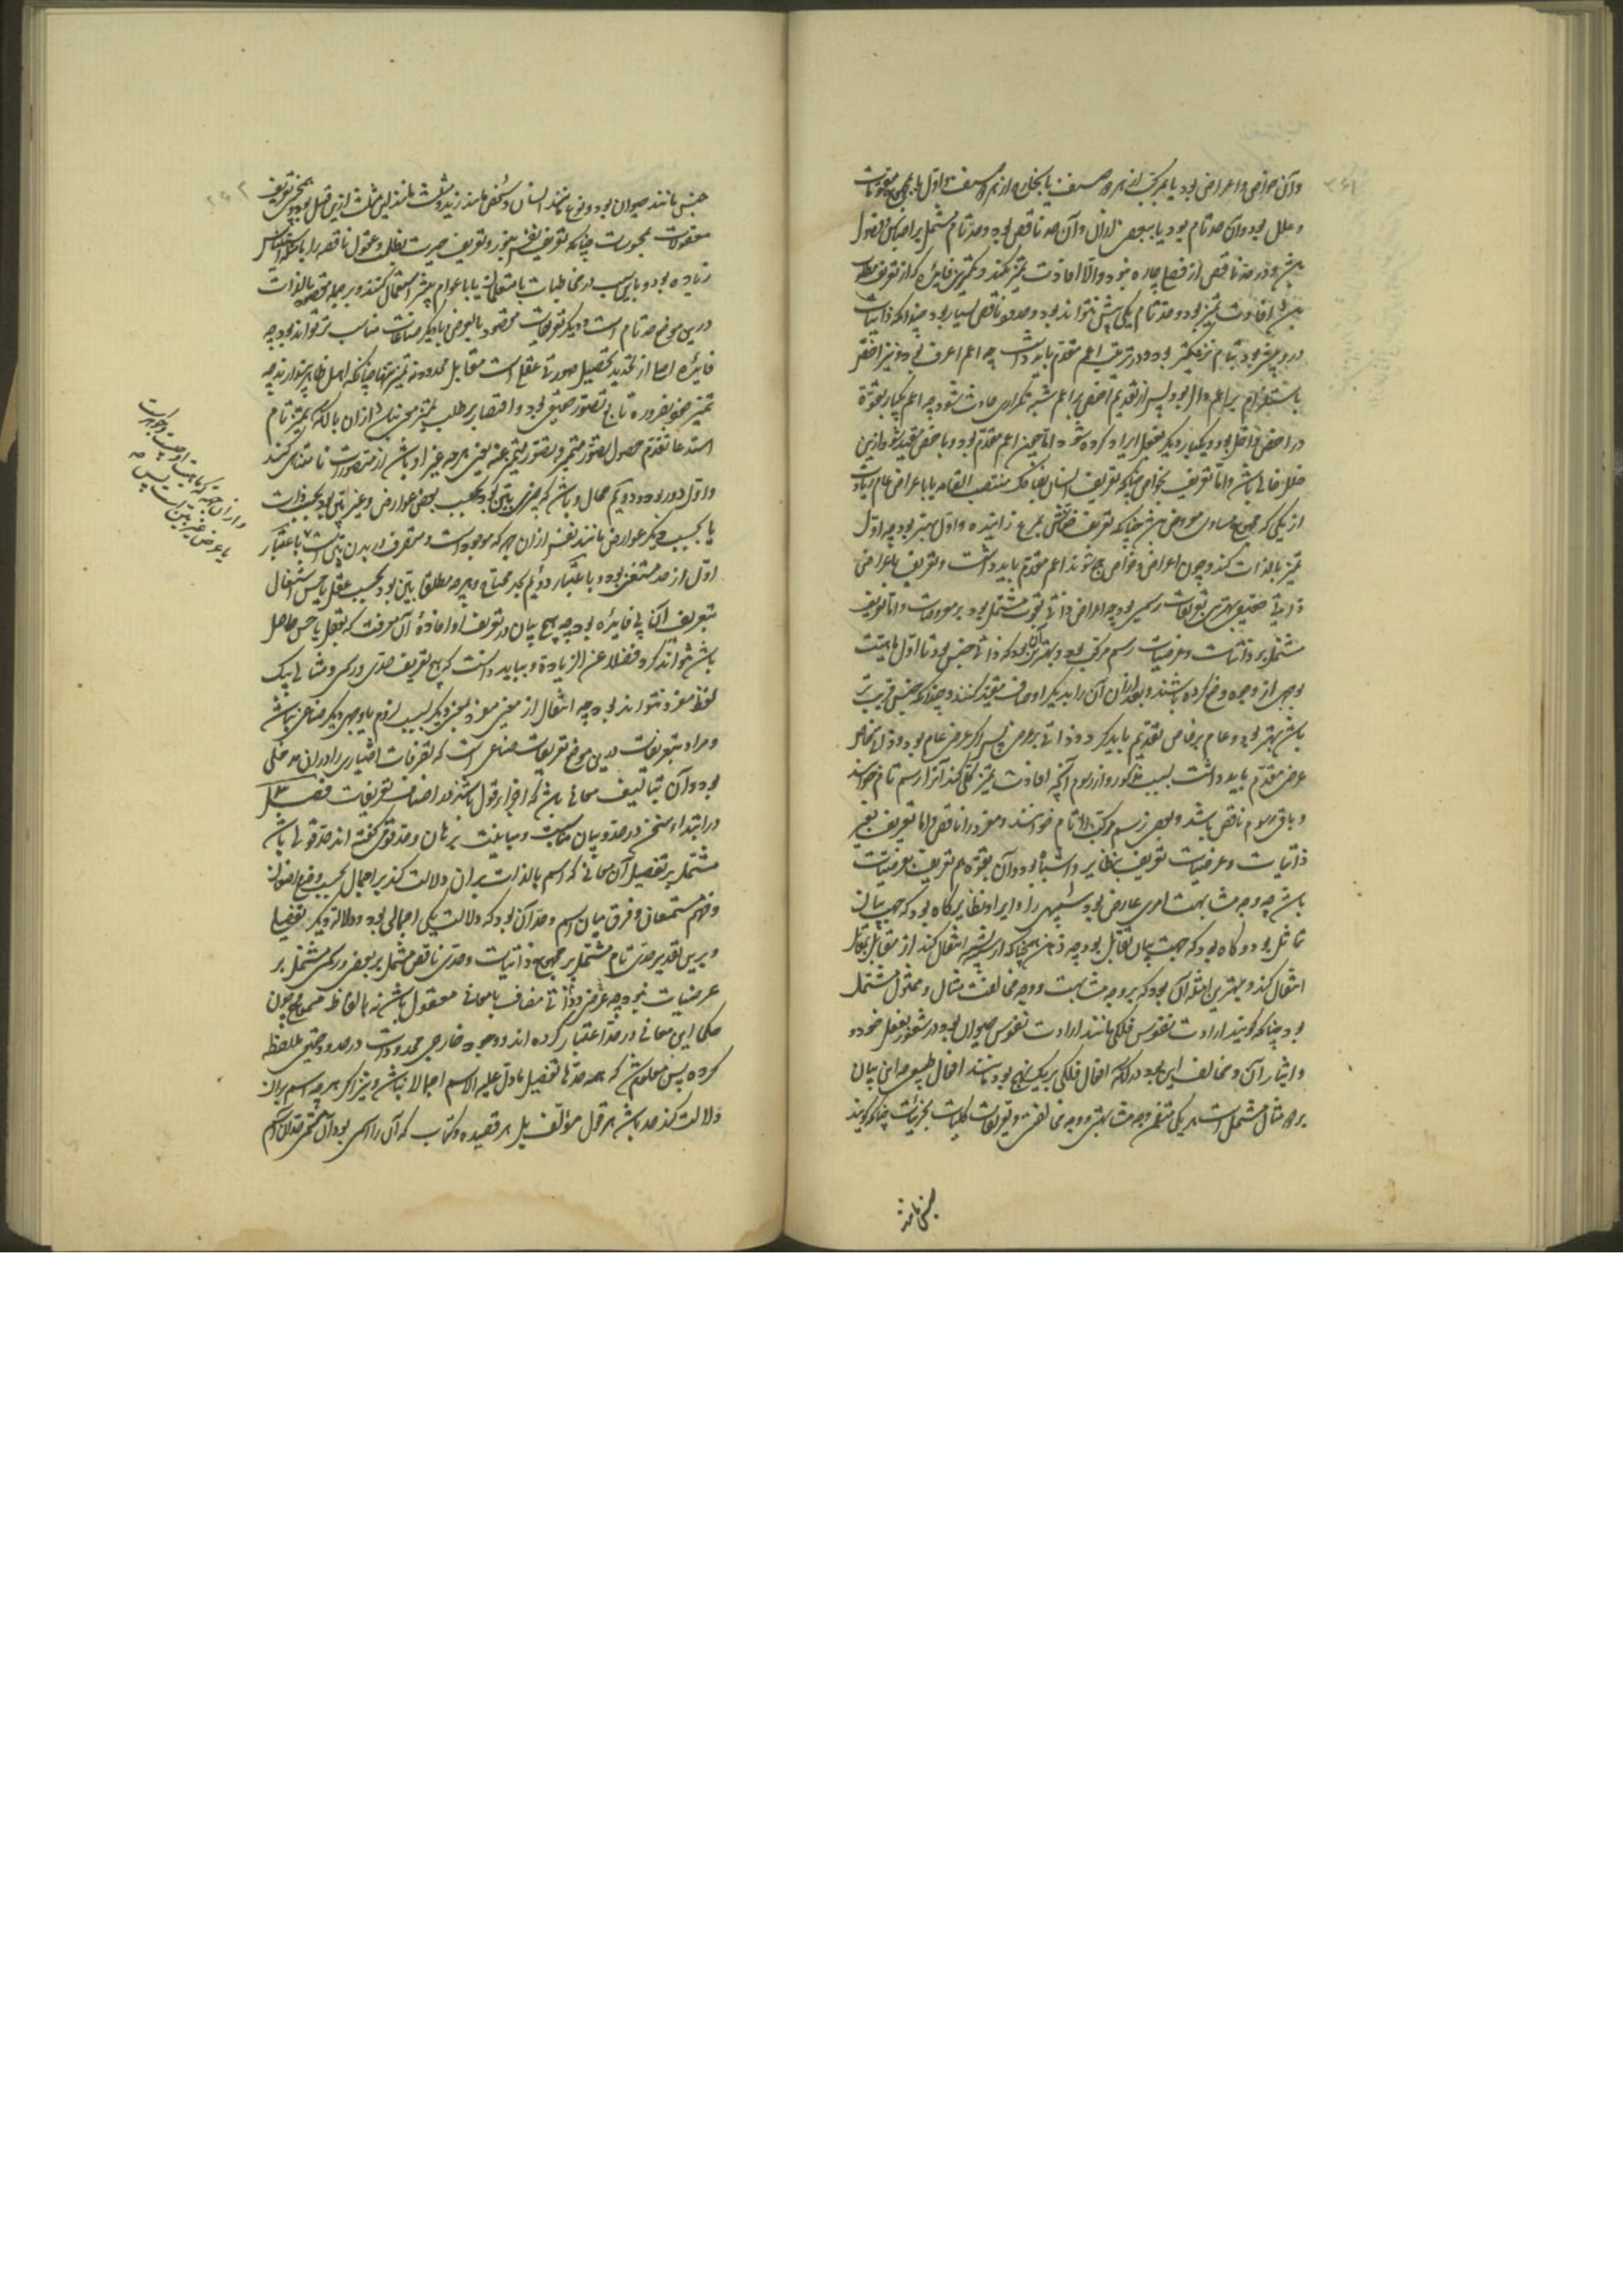 وآن خواص واعراض بود یا مرکب از هر دو صنف یا بخارج از هر دو صنف واول یا بمجموع مقومات
و علل بود وآن حد تام بود یا ببعضی ازان وآن حد ناقص بود وحد تام مشتمل بر اجناس وفصول
باشد ودر حد ناقص از فصل چاره نبود والا افادت تمیز نکند وکمترین فایده که از تعریف مطلوب
باشد افادت تمیز بود وحد تام یکی بیش نتواند بود وحدود ناقص بسیار بود وچندانکه ذاتیات
درو بیشتر بود بتام نزدیکتر بود ودر ترتیب اعم مقدم باید داشت چه اعم اعرف بود ونیز اخص
باستلزام بر اعم دال بود پس از تقدیم اخص بر اعم شبه تکراری حادث شود چه اعم یکبار بقوة
در اخص داخل بود ویکبار دیگر بفعل ایراد کرده شود اما چون اعم مقدم بود وباخص مقید شود ازین
خلل خالی باشد واما تعریف بخواص چنانکه تعریف انسان بضاحک منتصب القامه یا باعراض عام زیادت
از یکی که مجموع مساوی معروض باشد چنانکه تعریف خفاش بمرغ زاینده واول بهتر بود چه اول
تمیز بالذات کند وچون اعراض وخواص جمع شوند اعم مقدم باید داشت وتعریف باعراض
ذاتی حقیقی بهترین تعریفات رسمی بود چه اعراض ذاتی بقوت مشتمل بود بر معروضات واما تعریف
مشتمل بر ذاتیات وعرضیات رسم مرکب بود وبهترین آن بود که ذاتی جنس بود تا اول ماهیت
بوجهی از وجوه وضع کرده باشند وبعد ازان آن را بدیگر اوصاف مقید کنند وچندانکه جنس قریب تر
باشد بهتر بود وعام بر خاص تقدیم باید کرد وذاتی بر عرضی پس اگر عرضی عام بود وذاتی خاص
عرضی مقدم باید داشت بسبب مذکور واز رسوم آنچه افادت تمیز کلی کند آنرا رسم تام خوانند
وباقی رسوم ناقص باشد وبعضی رسم مرکب را تام خوانند ومفرد را ناقص واما تعریف بغیر
ذاتیات وعرضیات تعریف بنظایر واشباه بود وآن بقوة هم تعریف بعرضیات
باشد چه وجه مشابهت امری عارض بود شبیهی را وایراد نظایر گاه بود که بجهت بیان
تماثل بود وگاه بود که جهت بیان تقابل بود چه ذهن همچنانکه از شبیه بشبیه انتقال کند از مقابل بمقابل
انتقال کند وبهترین امثله آن بود که بر وجه مشابهت ووجه مخالفت مثال وممثول مشتمل
بود چنانکه گویند ارادت نفوس فلکی مانند ارادت نفوس حیوان بود در شعور بفعل خود و
وایثار آن ومخالف این بود در آنکه افعال فلکی بر یک نهج بود مانند افعال طبیعی چه این بیان
بر دو مثال مشتمل است هر یکی متضمن وجه مشابهتی ووجه مخالفتی وتعریفات کلیات بجزئیات چنانکه گویند
جنس مانند
جنس مانند حیوان بود ونوع مانند انسان وشخص مانند زید وصفت مانند این مثلث ازین قبیل بود وهمچنین تعریف
معقولات بمحسوسات چنانکه تعریف نفس بنور وتعریف حیرت بظلمت وعقول ناقصه را بامثله استیناس
زیاده بود وباین سبب در مخاطبات با متعلمان یا با عوام بیشتر استعمال کنند وبر جمله مقصود بالذات
درین موضع حد تام است ودیگر تعریفات مقصود بالعرض یا بدیگر صناعات مناسب تر تواند بود چه
فایده اصلی از تحدید تحصیل صورتی عقلی است مقابل محدود نه تمیز تنها چنانکه اهل ظاهر پندارند چه
تمیز خود بضروره تابع تصور حقیقی بود واقتصار بر طلب تمیز موجب بازماندن ازان با آنکه تمیز تام
استدعاء تقدم حصول تصور متمیز وتصور متمیز عنه یعنی هر چه غیر او باشد از متصورات نامتناهی کند
واول دور بود ودویم محال وباشد که چیزی بین بود بحسب بعضی عوارض وغیر بین بود بحسب ذات
یا بحسب دیگر عوارض مانند نفس ازان جهت که موجود است ومتصرف در بدن بین است باعتبار
اول از حد مستغنی بود وباعتبار دویم بحد محتاج وهر چه مطلقا بین بود بحسب عقل یا حس اشتغال
بتعریف آن بی فایده بود چه هیچ بیان در تعریف او افادهٔ آن معرفت که بعقل یا حس حاصل
باشد نتواند کرد فضلا عن الزیادة وبباید دانست که هیچ تعریف حدی ورسمی ومثالی بیک
لفظ مفرد نتواند بود چه انتقال از معنی مفرد بمعنی دیگر بسبب لزوم یا وجهی دیگر صناعی نباشد
ومراد بتعریفات درین موضع تعریفات صناعی است که تصرفات اختیاری را دران مدخلی
بود وآن بتالیف معانی باشد که اجزاء قول باشند در اصناف تعریفات فصل ۳
در ابتداء سخن در حد وبیان مناسبت ومباینت برهان وحد قومی گفته اند حد قولی باشد
مشتمل بر تفصیل آن معانی که اسم بالذات بران دلالت کند بر اجمال بحسب وضع واضعان
وفهم مستمعان وفرق میان اسم وحد آن بود که دلالت یکی اجمالی بود ودلالت دیگر تفصیلی
وبرین تقدیر حدی تام مشتمل بر مجموع ذاتیات وحدی ناقص مشتمل بر بعضی ورسمی مشتمل بر
عرضیات نبود چه عرضی وذاتی مضاف بامعانی معقول باشد نه بالفاظ مسموع چون
حکما این معانی در حد اعتبار کرده اند ووجود خارجی محدود است در حد حقیقی ملاحظه
کرده پس معلوم شد که همه حدها تفصیل مادل علیه الاسم اجمالا نباشد ونیز اگر هر چه اسم بران
دلالت کند حد باشد هر قول مؤلف بل هر قصیده وکتاب که آن را اسمی بود آن شعر حد آن اسم
وازان جهة که ماهیت او چیست وجوهر است
یا عرض غیر بین است پس صح